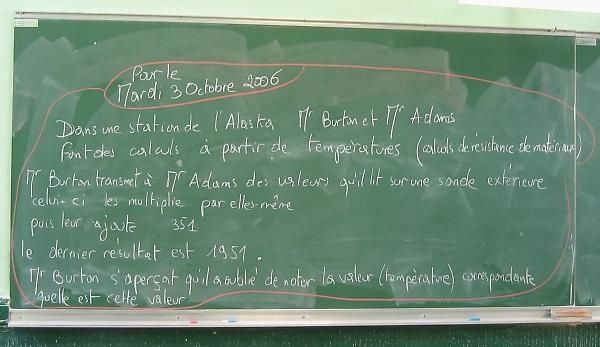 Pour le
Mardi 3 Octobre 2006
Dans une station de l'Alaska Mr Burton et Mr Adams
font des calculs à partir de températures (calculs de résistance de matériaux)
Mr Burton transmet à Mr Adams des valeurs qu'il lit sur une sonde extérieure
celui-ci les multiplie par elles-même
puis leur ajoute 351
le dernier résultat est 1951.
Mr Burton s'aperçoit qu'il a oublié de noter la valeur (température) correspondante
quelle est cette valeur